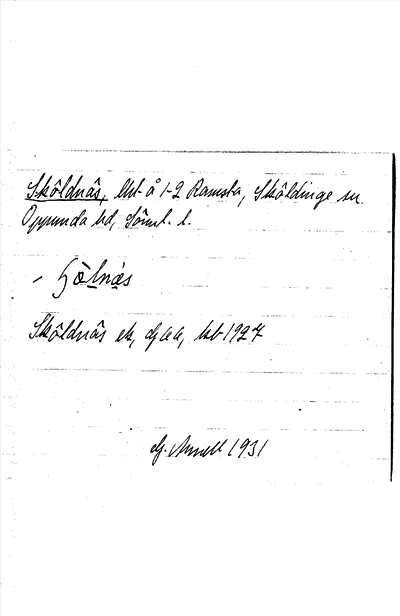 Sköldnäs, lht å 1-2 Ramsta, Sköldinge sn
Oppunda hd, Söml. l.
Sköldnäs ek, kb 1927
G. Annell 1931